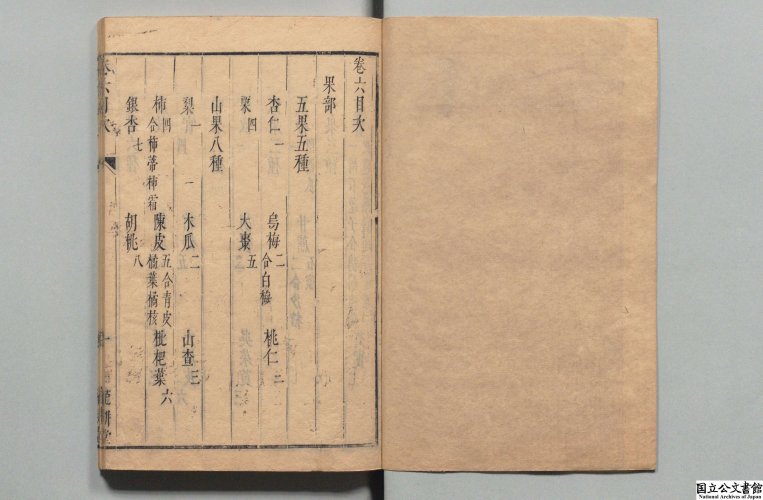 卷六目次
果部
五果五種
杏仁一 烏梅二 合白梅 桃仁三
栗四 大棗五
山果八種
梨一 木瓜二 山查三
柿四 合柿蒂柿霜 陳皮五 合青皮橘葉橘核 枇杷葉六
銀杏七 胡桃八
卷六目次 一
国立公文書館
National Archives of Japan